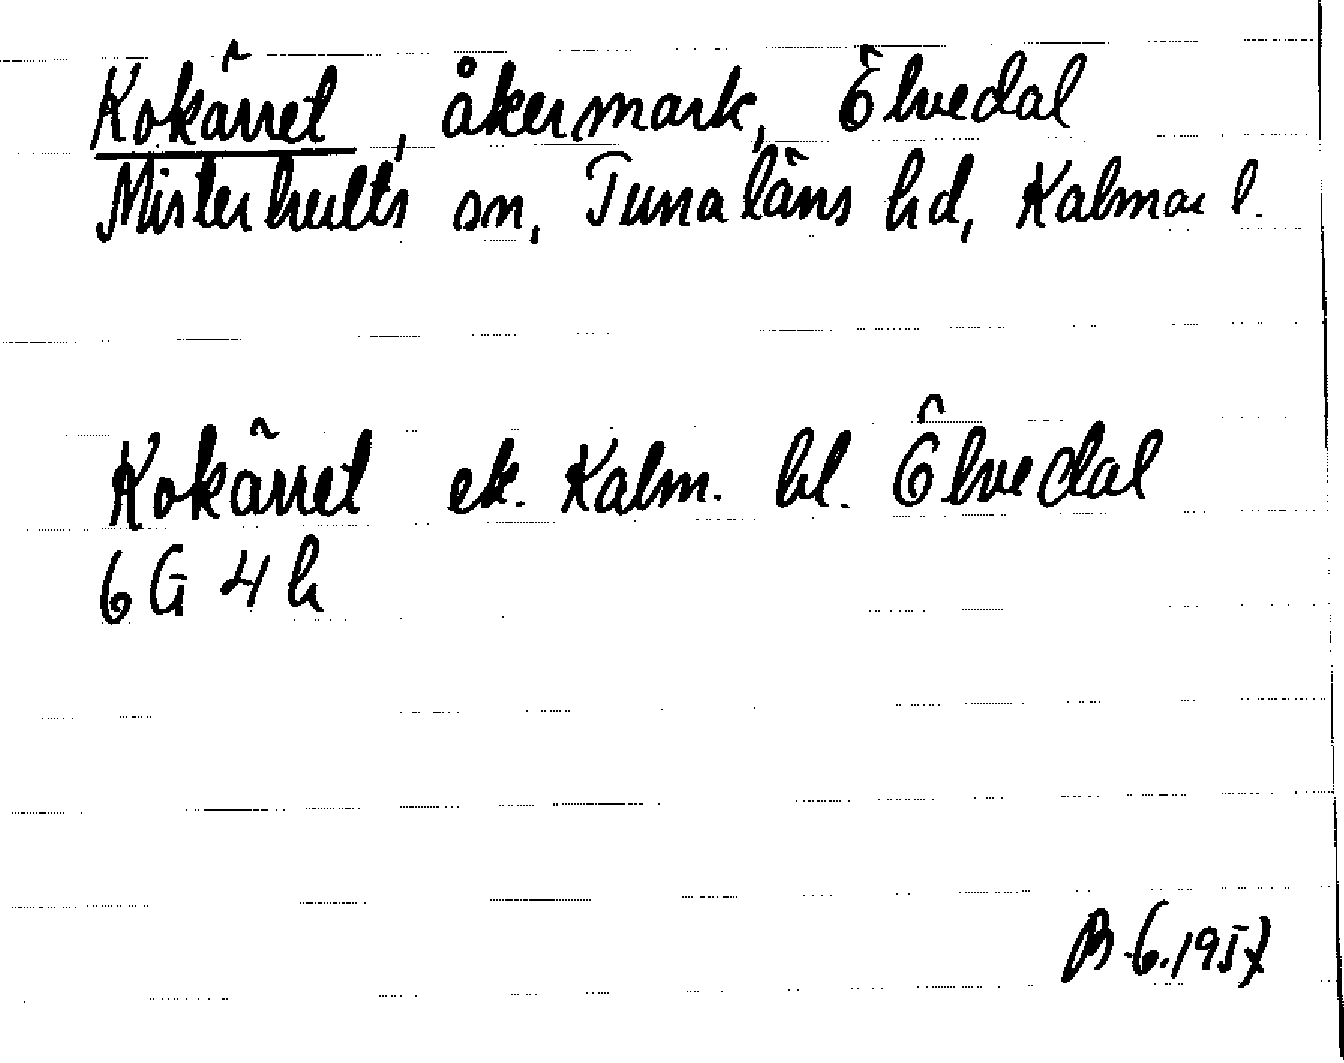 Kokärret, åkermark, Ölvedal
Misterhults sn, Tunaläns hd, Kalmar l.
Kokärret ek. Kalm. bl. Ölvedal
6G 4h
B.G. 1957